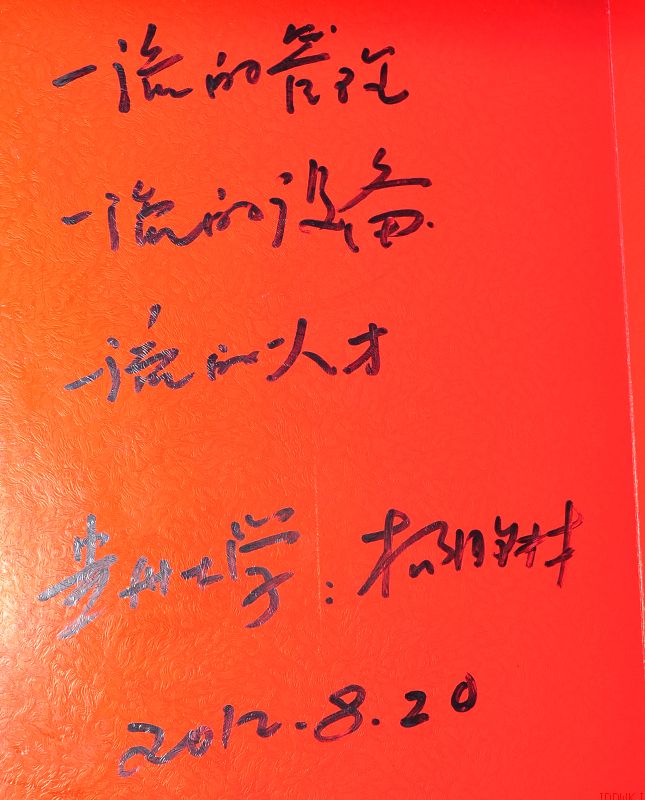 一流的管理
一流的设备
一流的人才
贵州大学：杨
2012.8.20